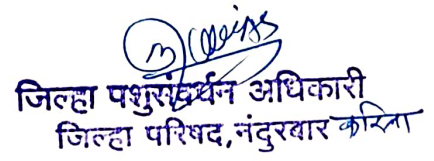 जिल्हा पशुसंवर्धन अधिकारी
जिल्हा परिषद, नंदुरबार करिता